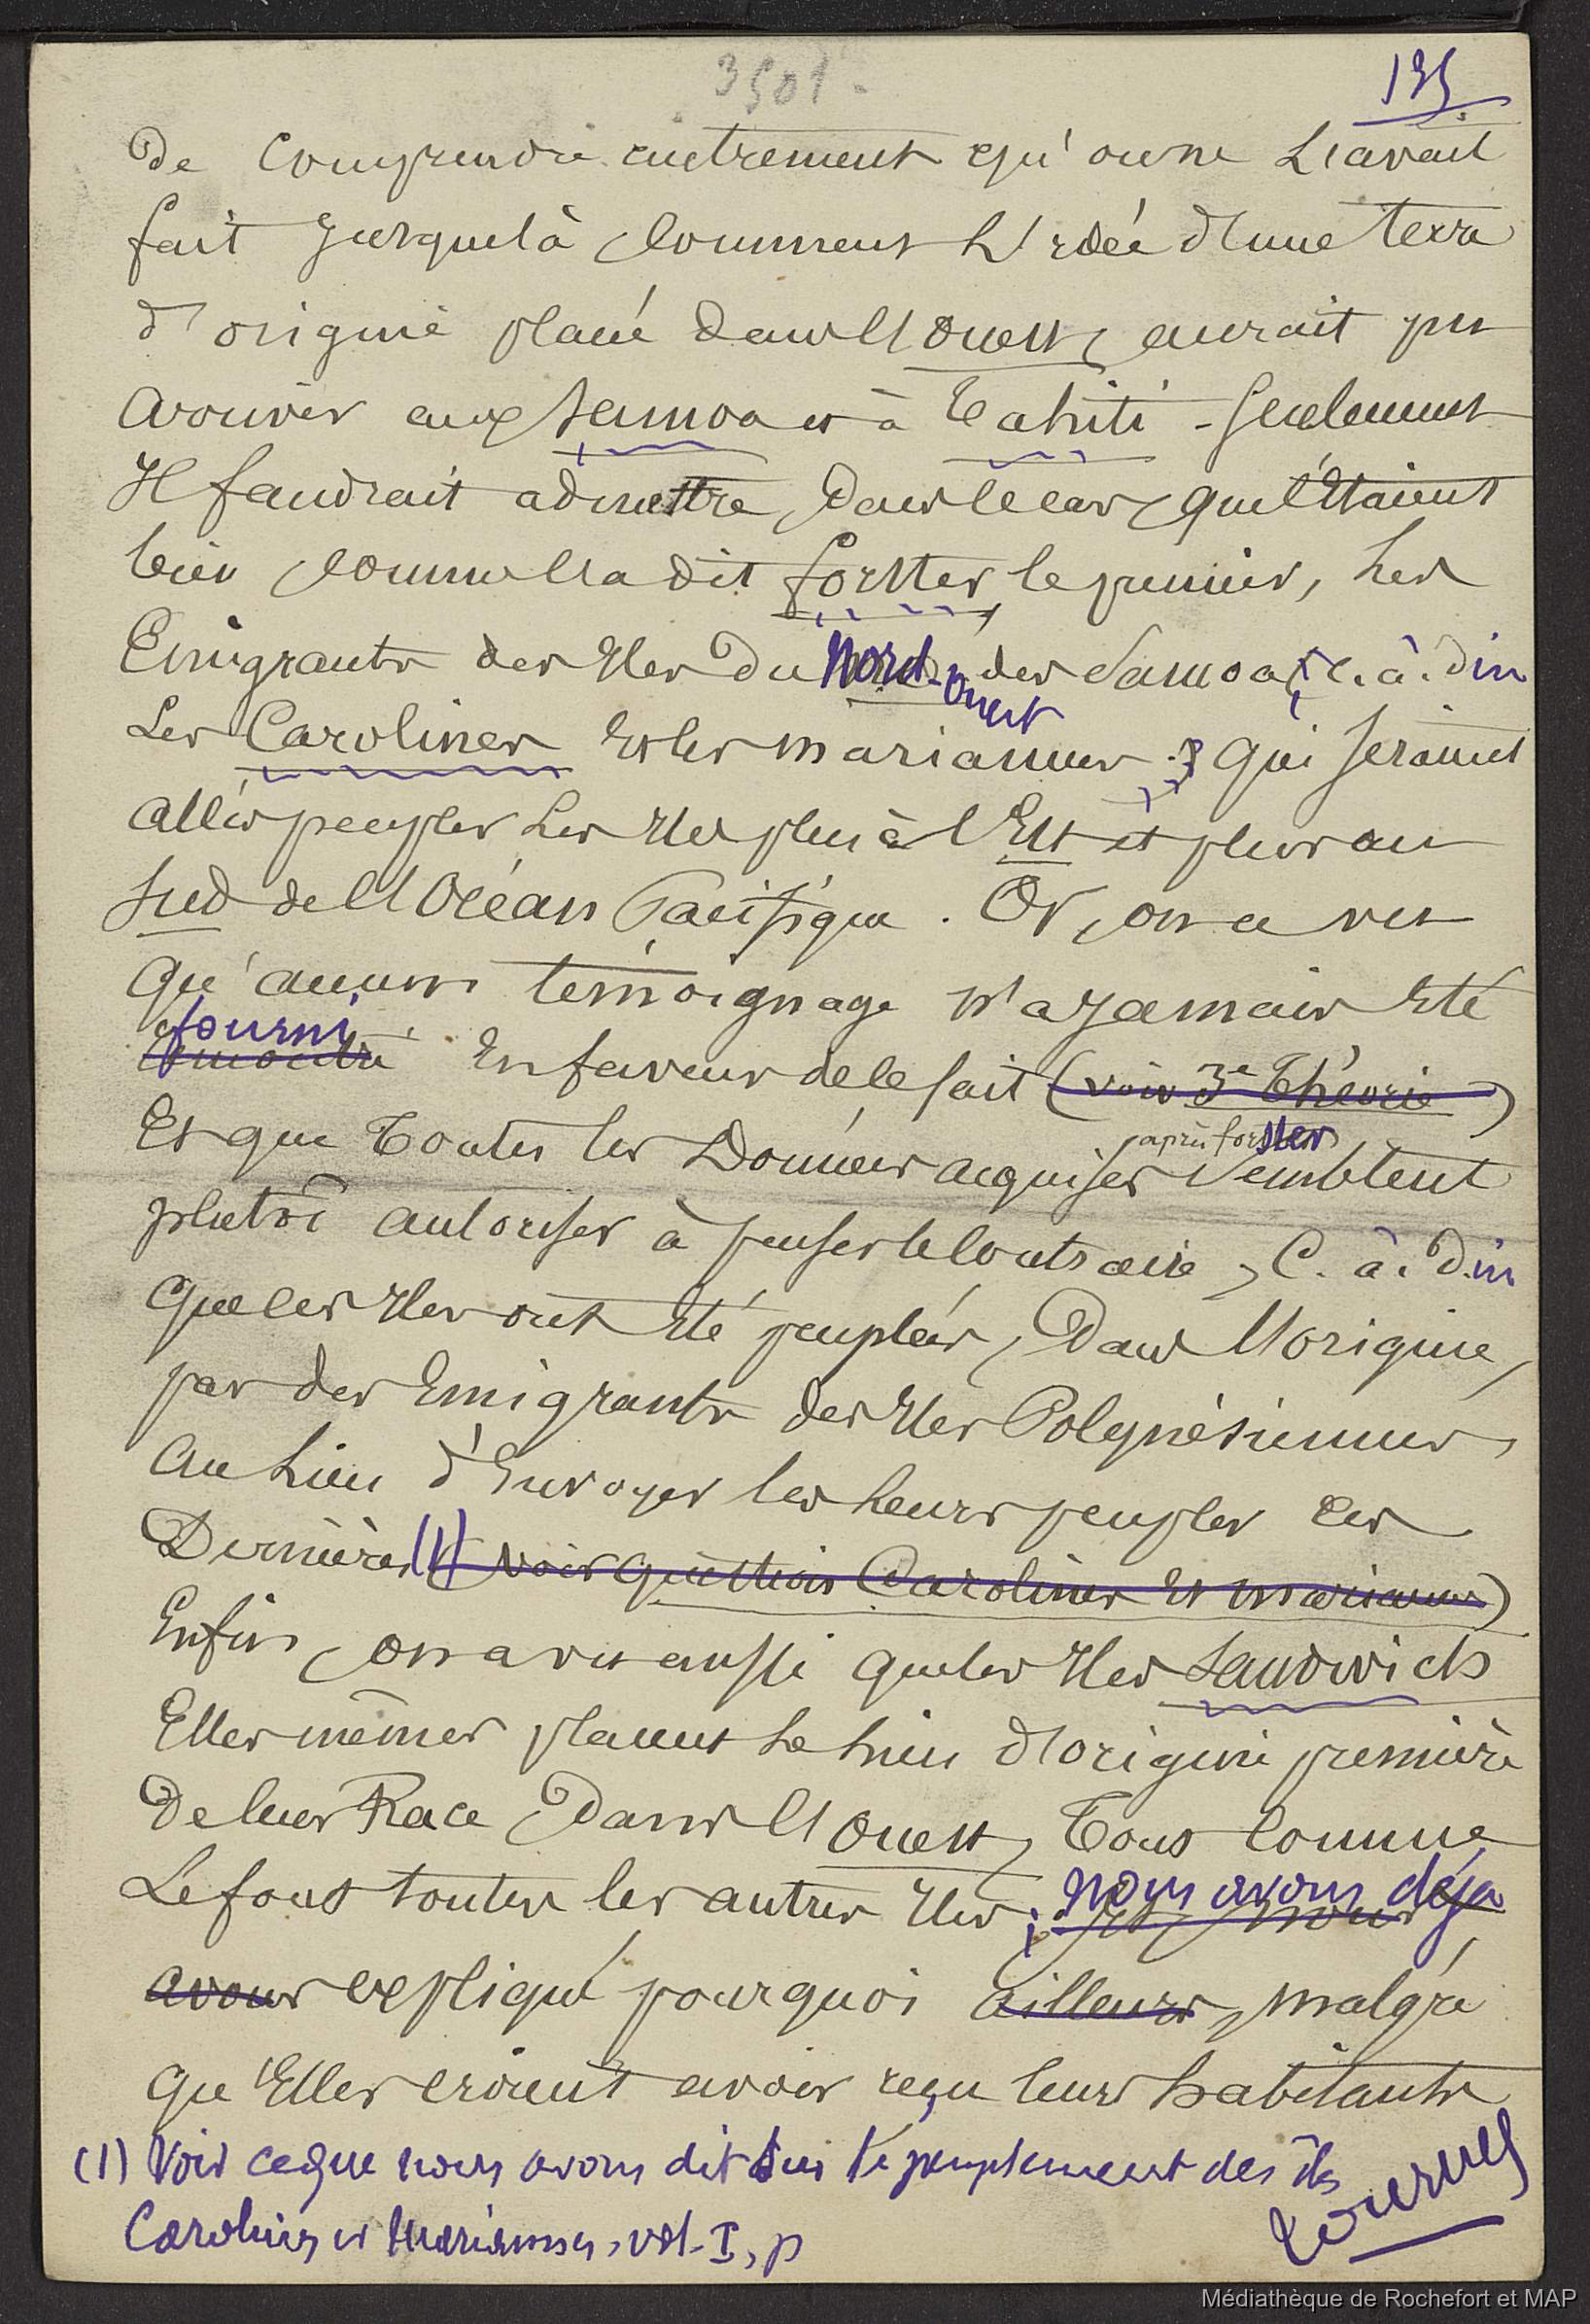 3501.
135
De Comprendre autrement qu'on ne L'avait
fait jusque là comment L'idée d'une terre
d'origine placée dans l'Ouest, aurait pu
arriver aux Samoa et à Tahiti - Seulement
Il faudrait admettre, dans le cas, que c'étaient
bien, comme l'a dit forster, le premier, Les
Emigrants des Iles du Nord-ouest des Samoa, c. à. dire
Les Carolines et les mariannes; qui seraient
allés peupler Les Iles plus à l'Est et plus au
Sud de l'Océan Pacifique. Or, on a vu
qu'aucun témoignage n'a jamais été
fourni
En faveur de ce fait (voir 3e Théorie)
après forster
Et que Toutes les Données acquises semblent
plutôt autoriser à penser le contraire, C. à. dire
que ces Iles ont été peuplées, Dans l'origine,
par des Emigrants des Iles Polynésiennes,
au Lieu d'Envoyer les Leurs peupler ces
Dernières (1) (voir question Carolines et mariannes)
Enfin, on a vu aussi que les Iles Sandwich
Elles mêmes placent Le Lieu d'origine première
De leur Race, Dans l'Ouest, Tout comme
Le font toutes les autres Iles; nous avons déjà
avons expliqué pourquoi ailleurs, malgré
qu'Elles croient avoir reçu leurs habitants
(1) Voir ce que nous avons dit sur le peuplement des îles
Carolines et Mariannes, vol. I, p
Tournez
Médiathèque de Rochefort et MAP